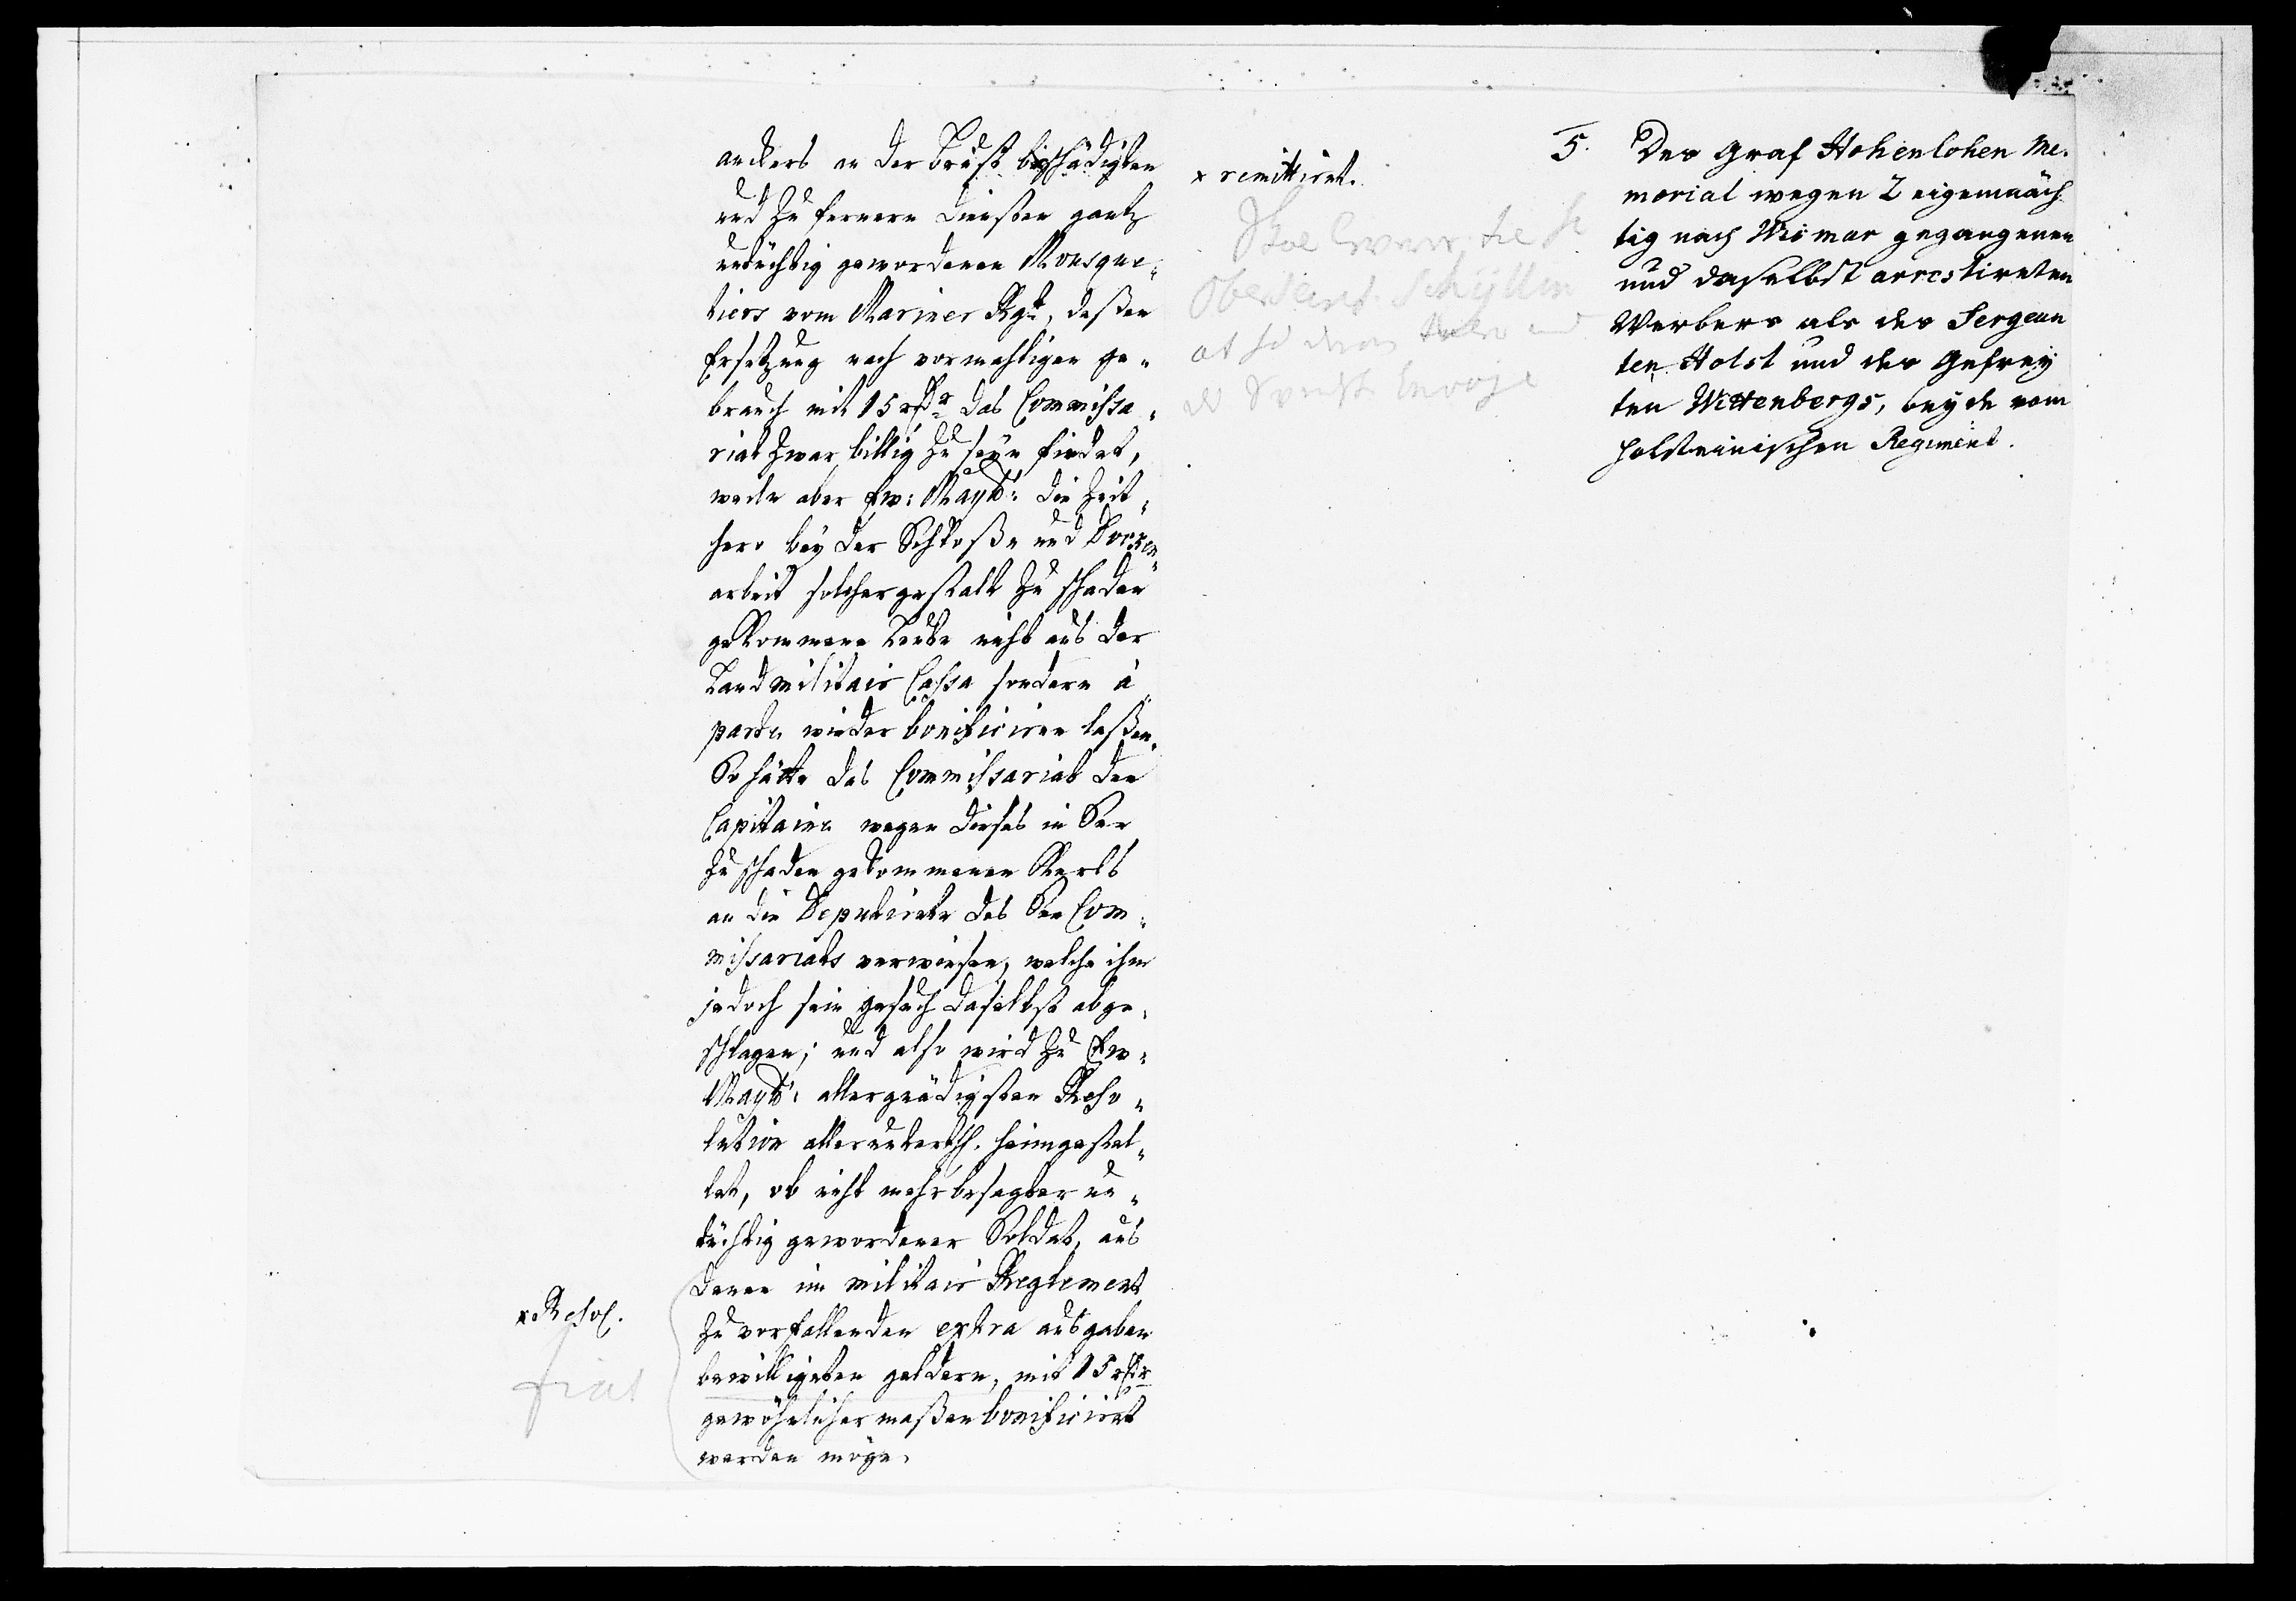 anckers an der Brust beschädigten
und zu fernern diensten gantz
untüchtig gewordenen Mousque-
tiers vom Mariner Rgt, deßen
Ersetzung nach vormahligen ge-
brauch mit 15 rdr das Commissa-
riat zwar billig zu seyn findet,
weiln aber Ew: Maytt: die Zeit-
hero bey der Schloße und Docken
arbeit solchergestalt zu schaden
gekommene Leute nicht aus der
Land militair Cassa sondern à
parte wieder bonificiren laßen.
So hätte das Commissariat den
Capitaine wegen dieses in See
zu schaden gekommenen Kerls
an die Deputirte des See Com-
missariats verwiesen, welche ihm
jedoch sein gesuch daselbst abge-
schlagen; und also wird zu Ew-
Maytt: allergnädigsten Reso-
lution allerunterth. heimgestel-
let, ob nicht mehrbesagter un-
tüchtig gewordener Soldat, aus
denen im militair Reglement
zu vorfallenden extra ausgaben
bewilligten geldern, mit 15 rdr
gewöhnlicher maßen bonificirt
werden möge.
x Resol.
fiat
x remittirt.
Skal
Oberleut. Schyllen
at
Envoje
5. Des Graf Hohenlohen Me-
morial wegen 2 eigenmäch
tig nach Wismar gegangenen
und daselbst arrestireten
Werbers als des Sergean
ten Holst und des Gefrey
ten Wittenbergs, beyde vom
holsteinischen Regiment.